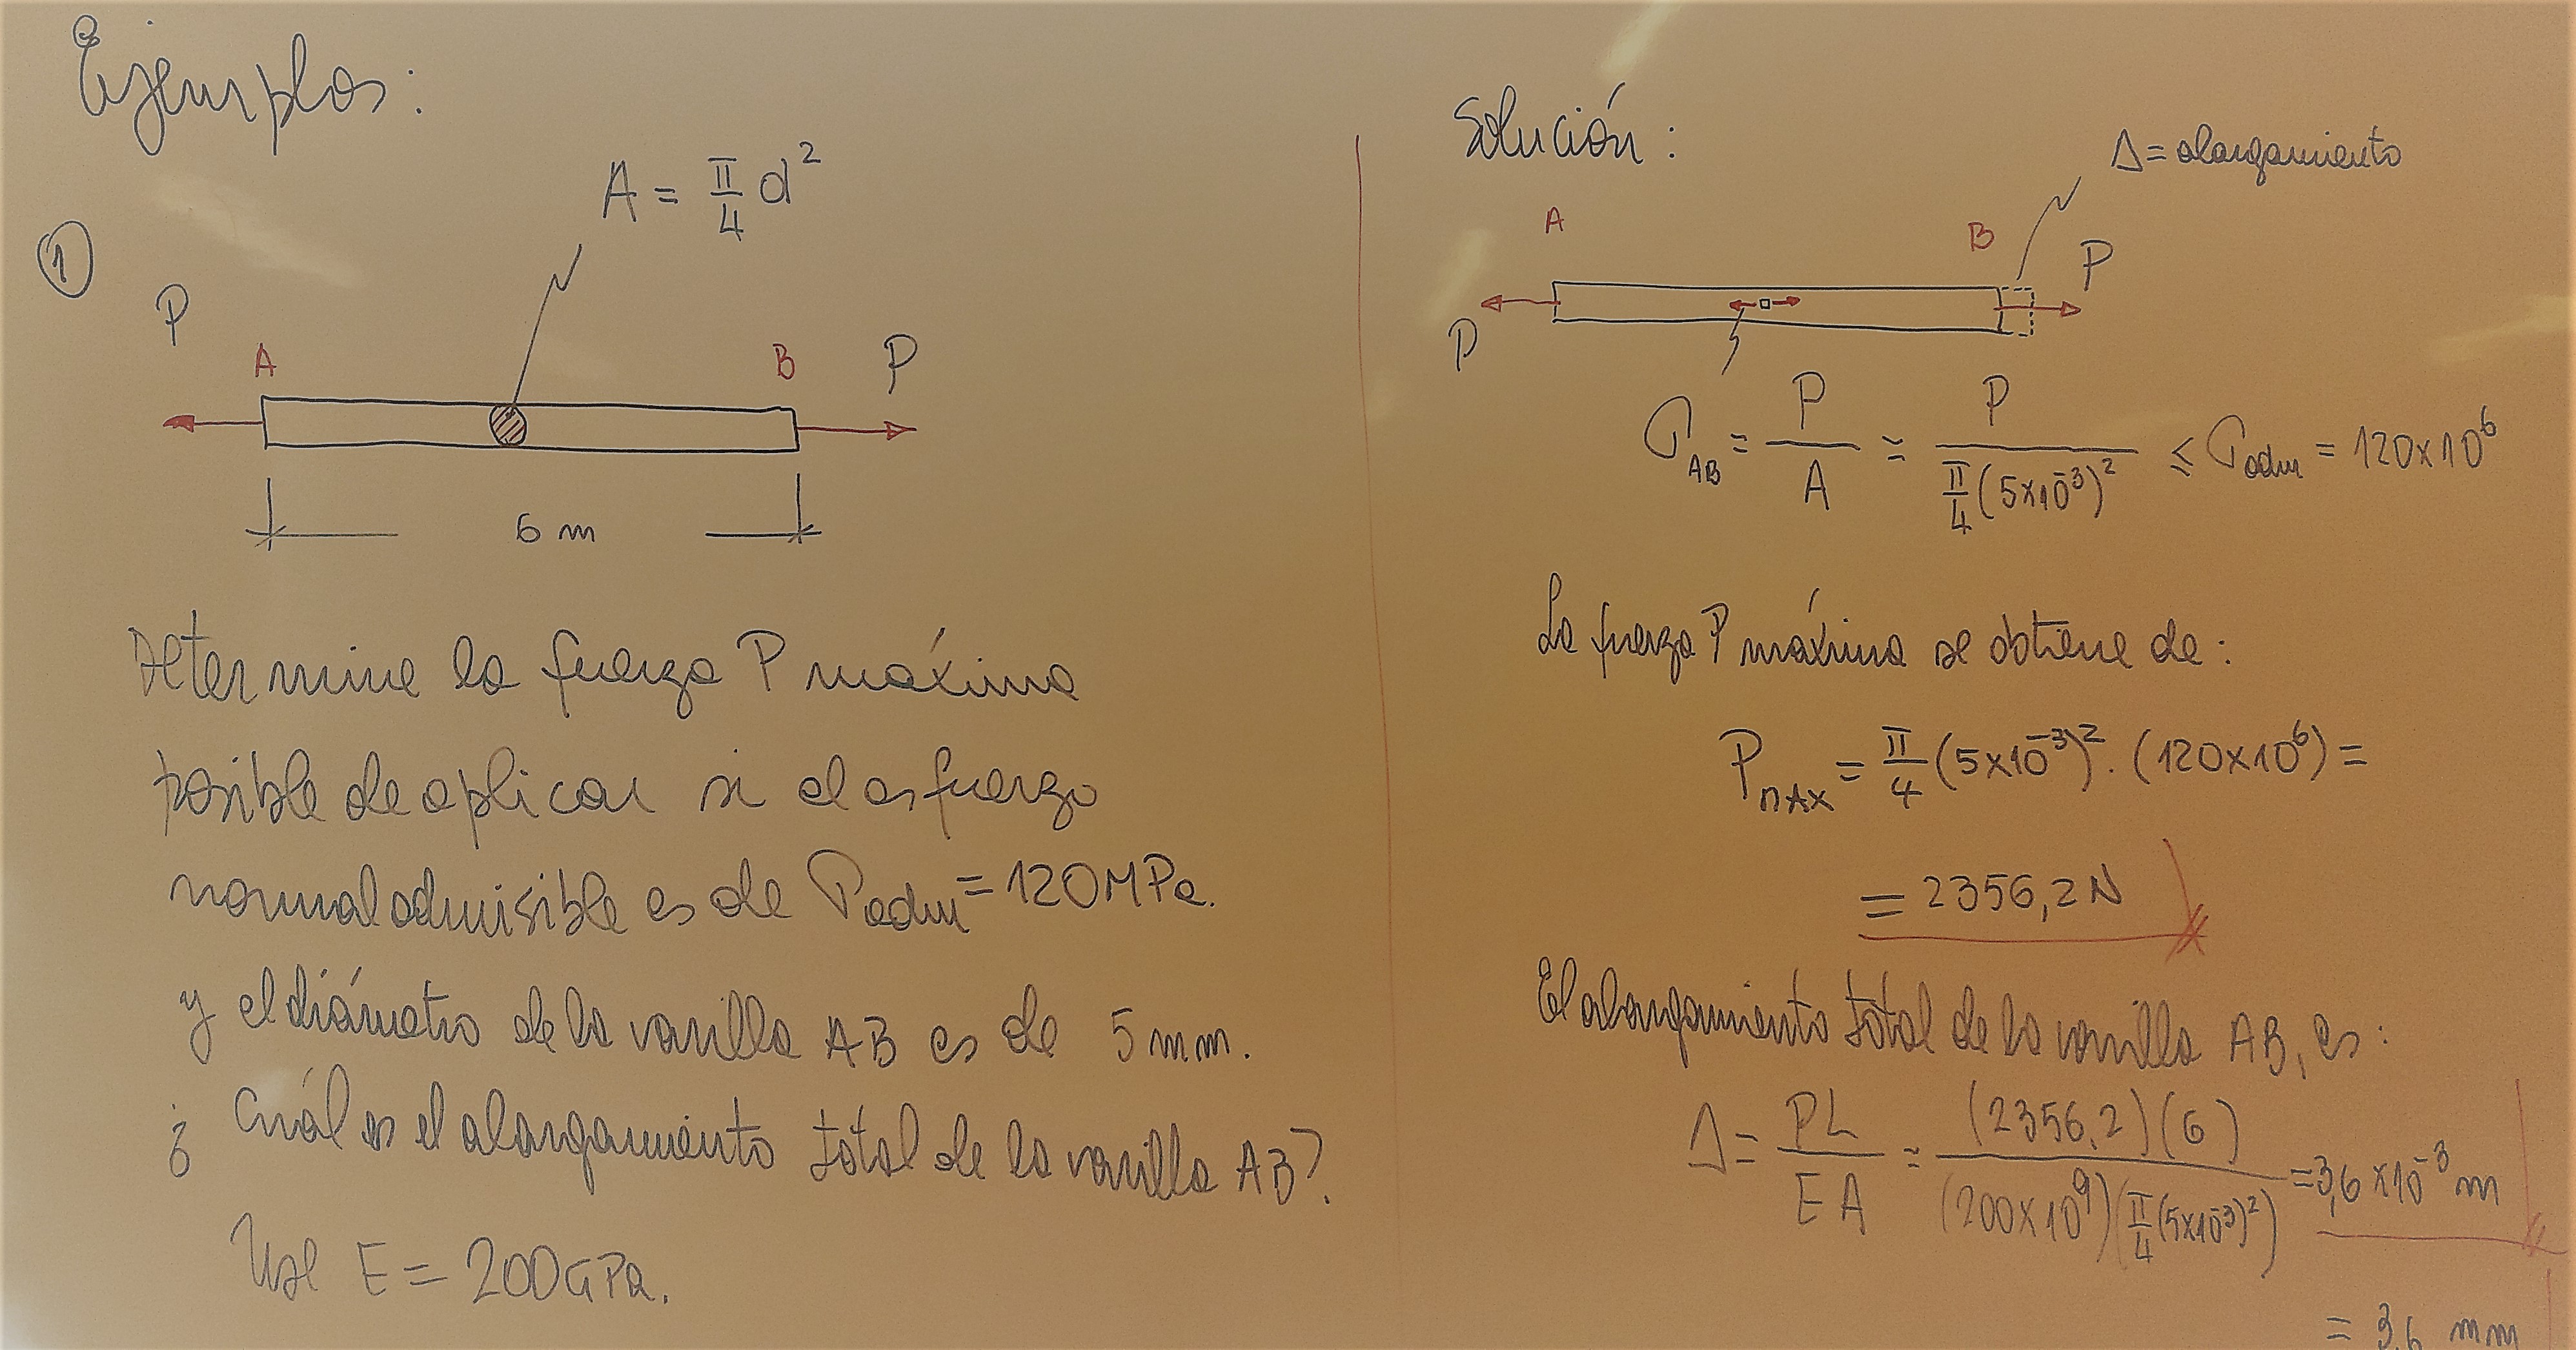 Ejemplos:
①
A = π/4 d²
P
A
B
P
6 m
Determine la fuerza P máxima
posible de aplicar si el esfuerzo
normal admisible es de σadm = 120MPa.
y el diámetro de la varilla AB es de 5 mm.
¿ Cuál es el alargamiento total de la varilla AB?
Use E = 200GPa.
Solución:
Δ = alargamiento
A
B
P
P
σAB = P/A = P/(π/4 (5x10⁻³)²) ≤ σadm = 120x10⁶
La fuerza P máxima se obtiene de:
PMAX = π/4 (5x10⁻³)² . (120x10⁶) =
= 2356,2N
El alargamiento total de la varilla AB, es:
Δ = PL/EA = (2356,2)(6)/((200x10⁹)(π/4 (5x10⁻³)²)) = 3,6 x10⁻³ m
= 3,6 mm